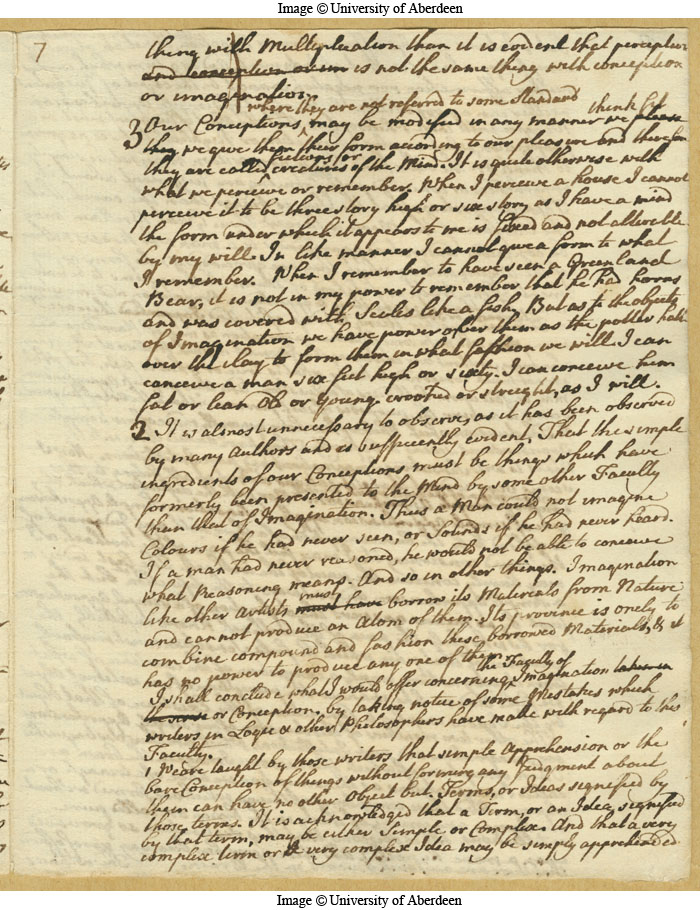 Image © University of Aberdeen
7
thing with Multiplication than it is evident that perception
and conception or im is not the same thing with conception
or imagination.
where they are not referred to some Standard think fit
3 Our Conceptions may be modified in any manner we please
they we give them their form according to our pleasure and therefore
fictions or
they are called creatures of the Mind. It is quite otherwise with
what we perceive or remember. When I perceive a house I cannot
perceive it to be three story high or six story as I have a mind
the form under which it appears to me is fixed and not alterable
by my will. In like manner I cannot give a form to what
I remember. When I remember to have seen a Greenland
Bear, it is not in my power to remember that he had horns
and was covered with Scales like a fish, But as to the objects
of Imagination we have power over them as the potter hath
over the clay to form them in what fashion we will. I can
conceive a man six feet high or sixty. I can conceive him
fat or lean Old or Young crooked or streight, as I will.
2 It is almost unnecessary to observe, as it has been observed
by many Authors and is sufficiently evident, That the simple
ingredients of our Conceptions must be things which have
formerly been presented to the Mind by some other Faculty
than that of Imagination. Thus a Man could not imagine
Colours if he had never seen, or Sounds if he had never heard.
If a man had never reasoned, he would not be able to conceive
what Reasoning means. And so in other things. Imagination
must
like other Artists must have borrow its Materials from Nature
and cannot produce an Atom of them. Its province is onely to
combine compound and fashion these borrowed Materials, & it
has no power to produce any one of them.
the Faculty of
I shall conclude what I would offer concerning Imagination
or Conception. by taking notice of some Mistakes which
writers in Logic & other Philosophers have made with regard to this
Faculty.
1 We are taught by those writers that simple Apprehension or the
bare Conception of things without forming any Judgment about
them can have no other Object but Terms, or Ideas signified by
those terms. It is acknowledged that a Term, or an Idea signified
by that term, may be either Simple or Complex. And that a very
complex term or a very complex Idea may be simply apprehended.
Image © University of Aberdeen